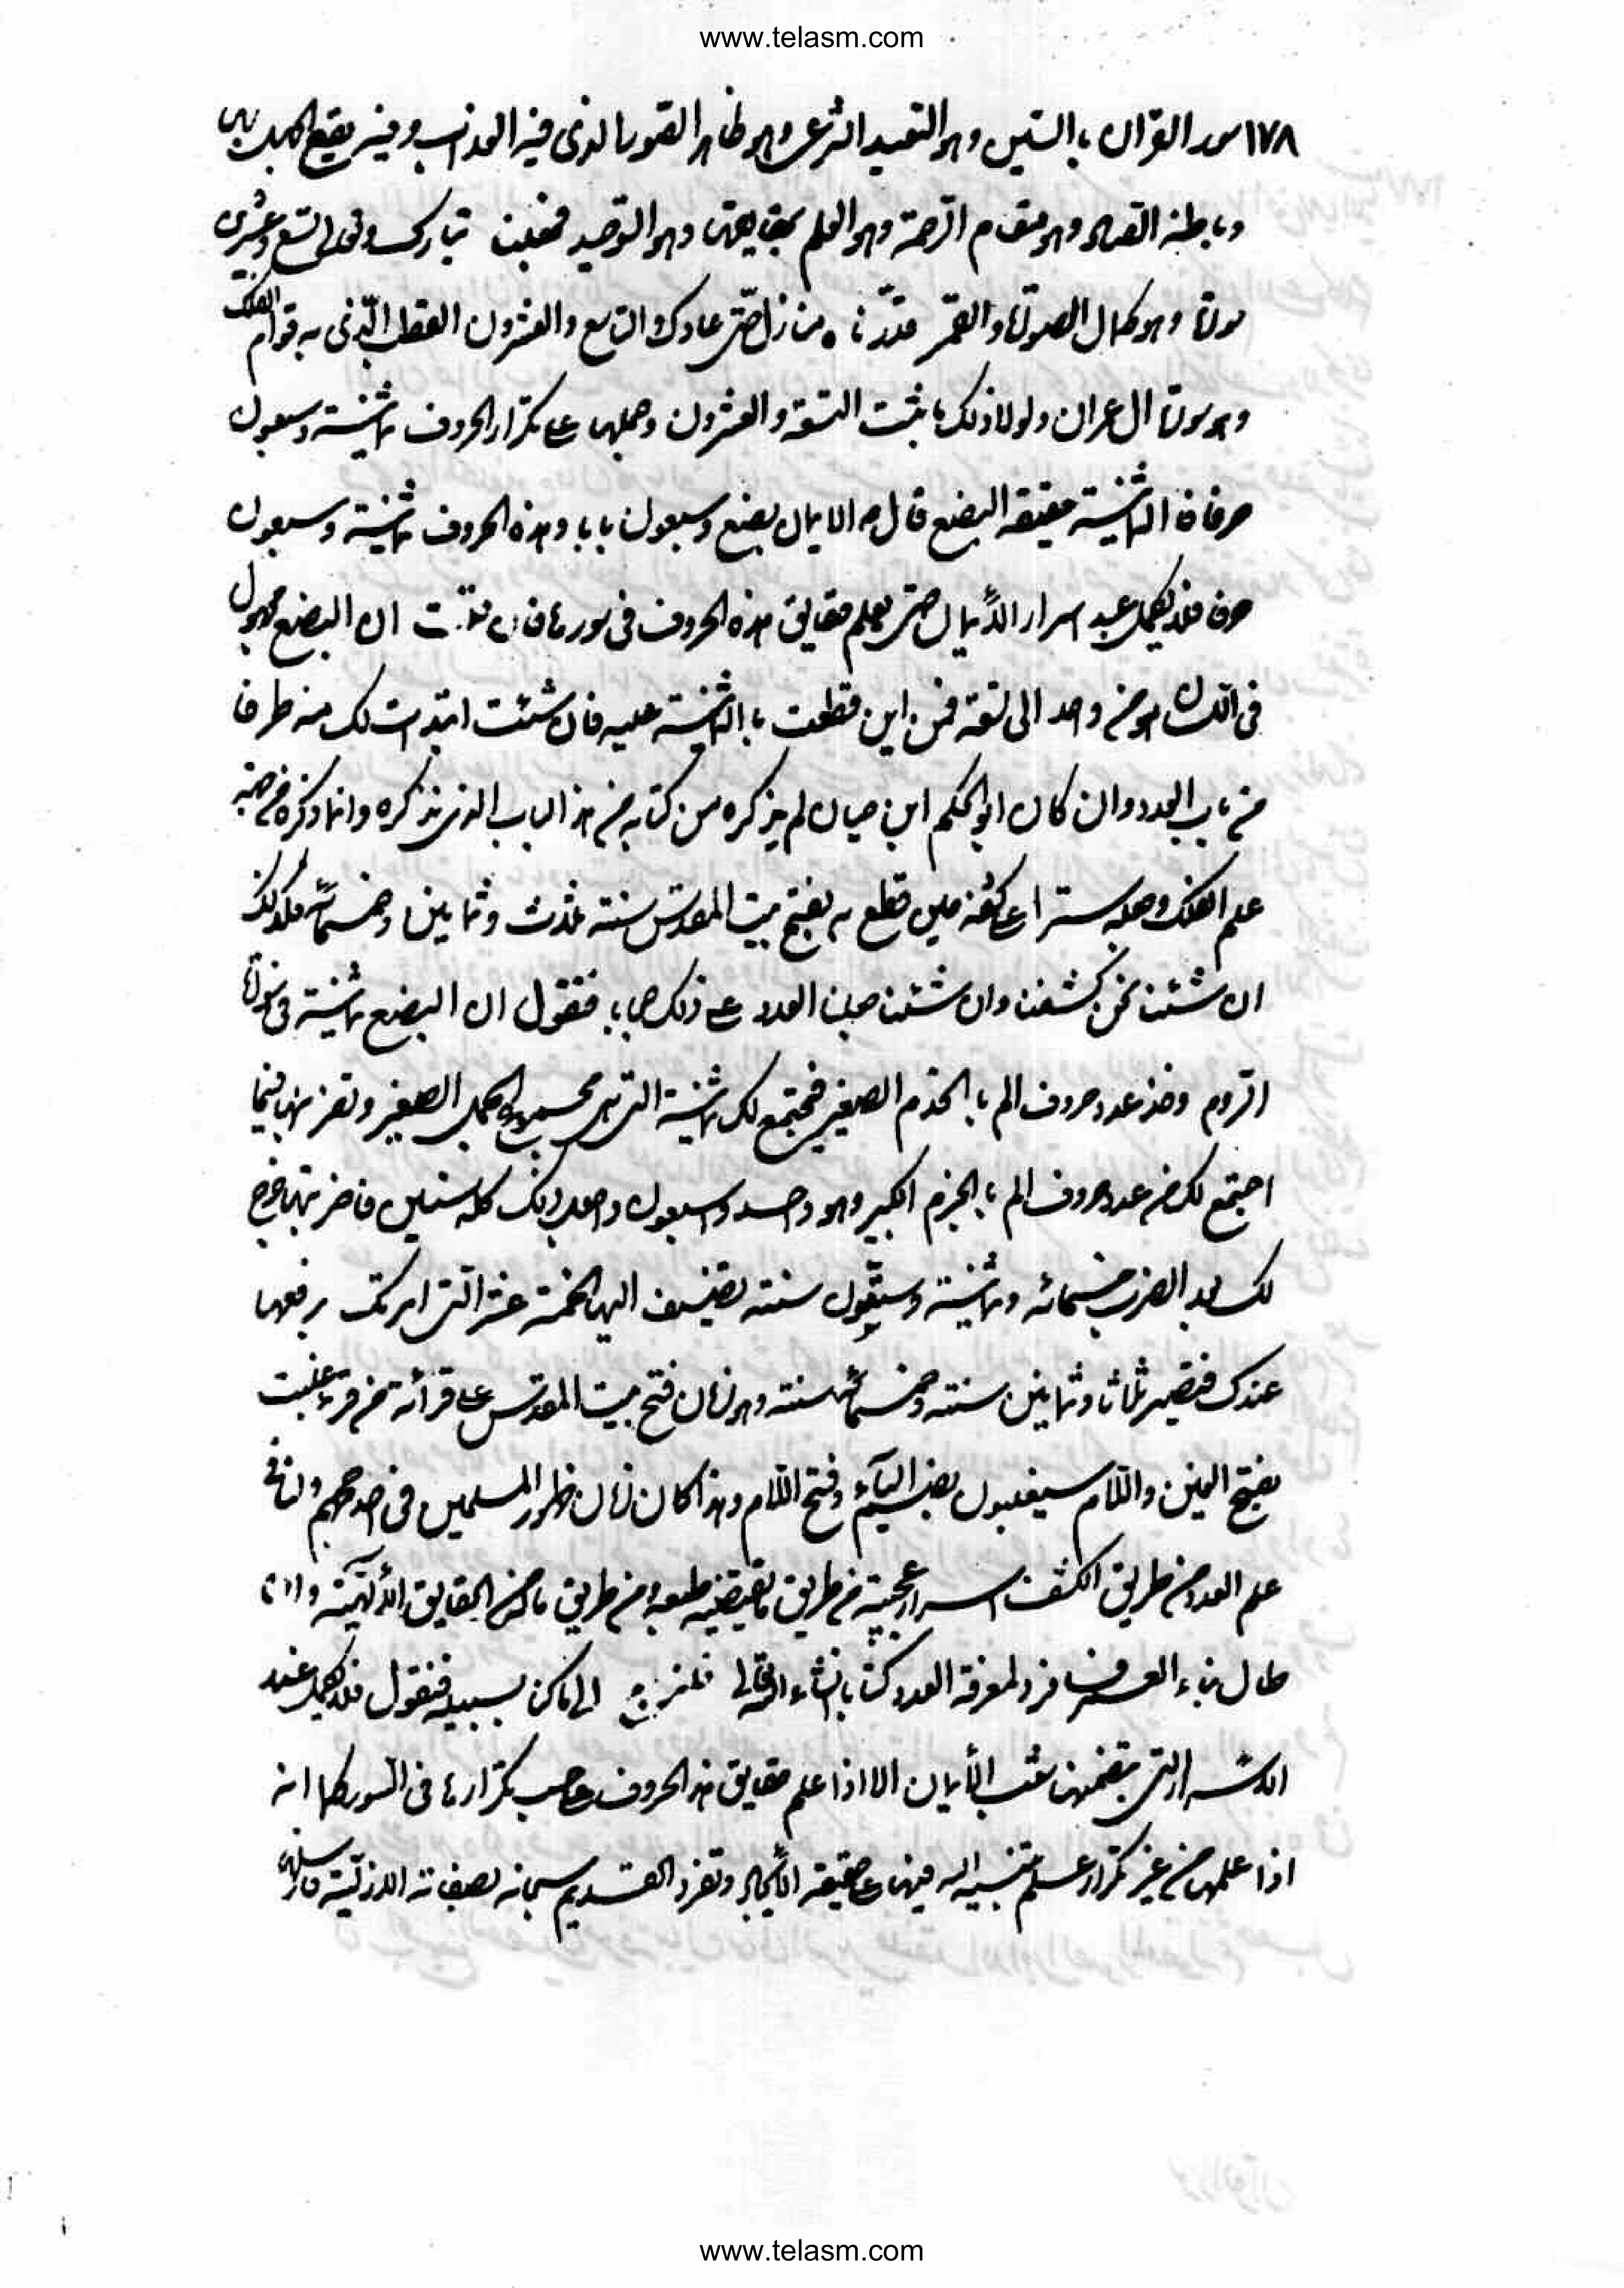 www.telasm.com
١٧٨ سور القران بالسين وهو التعبد الشرعى وهو ظاهر الصور الذى فيه العذاب وفيه يقع الجهل بها
وباطنه الصاد وهو مقام الرحمة وهو العلم بحقايقها وهو التوحيد فجعلت تبارك وتعالى تسع وعشرين
سورة وهو كمال الصورة والقمر قدرناه منازل حتى عاد كـ والتاسع والعشرون القطب الذى به قوام الفلك
وهو سورة ال عمران ولولا ذلك ما ثبت التسعة والعشرون وجملها على تكرار الحروف ثمانية وسبعون
حرفا فالثمانية حقيقة البضع قال الايمان بضع وسبعون بابا وهذه الحروف ثمانية وسبعون
حرفا فلا يكمل عبد اسرار الايمان حتى يعلم حقايق هذه الحروف فى سورها فان قلت ان البضع مجهول
فى اللسان فهو من واحد الى تسعة فمن اين قطعت بالثمانية عليه فان شئت ابتديت لك منه طرفا
من باب العدد وان كان ابو الحكم ابن حيان لم يذكره من كتابه من هذا الباب الذى نذكره وانما ذكره من جهة
علم الفلك وجعله سترا على كشفه حين قطع به بفتح بيت المقدس سنة ثلاث وثمانين وخمسمائة فكذلك
ان شئنا نحن كشفنا وان شئنا جعلنا العدد على ذلك حجابا فنقول ان البضع ثمانية فى سورة
الروم وخذ عدد حروف الم بالجزم الصغير فيجتمع لك ثمانية التى هى بحسب الجمل الصغير وتضربها فيما
اجتمع لك من عدد حروف الم بالجزم الكبير وهو واحد وسبعون واجعل ذلك كله سنين فاضربها يخرج
لك بعد الضرب خمسمائة وثمانية وستون سنة تضيف اليها الخمسة عشر التى امرتك برفعها
عندك فتصير ثلاثا وثمانين سنة وخمسمائة سنة وهو زمان فتح بيت المقدس على قرائة من قرء غلبت
بفتح الغين واللام سيغلبون بضم الياء وفتح اللام وهذا كان زمان ظهور المسلمين فى اخذ حجهم ولنا فى
علم العدد من طريق الكشف اسرار عجيبة من طريق ما يقتضيه طبعه ومن طريق ما له من الحقايق الالهية وان
طال بناء العمر فسافرد لمعرفة العدد كتابا انشاء الله تعالى فلنرجع الى ما كنا بسبيله فنقول فلا يكمل عبد
الاسرار التى يتضمنها شعب الايمان الا اذا علم حقايق هذه الحروف على حسب تكرارها فى السور كما انه
اذا علمها من غير تكرار علم تنبيه الله فيها على حقيقة الايجاد وتفرد القديم سبحانه بصفاته الازلية فارسلها
www.telasm.com